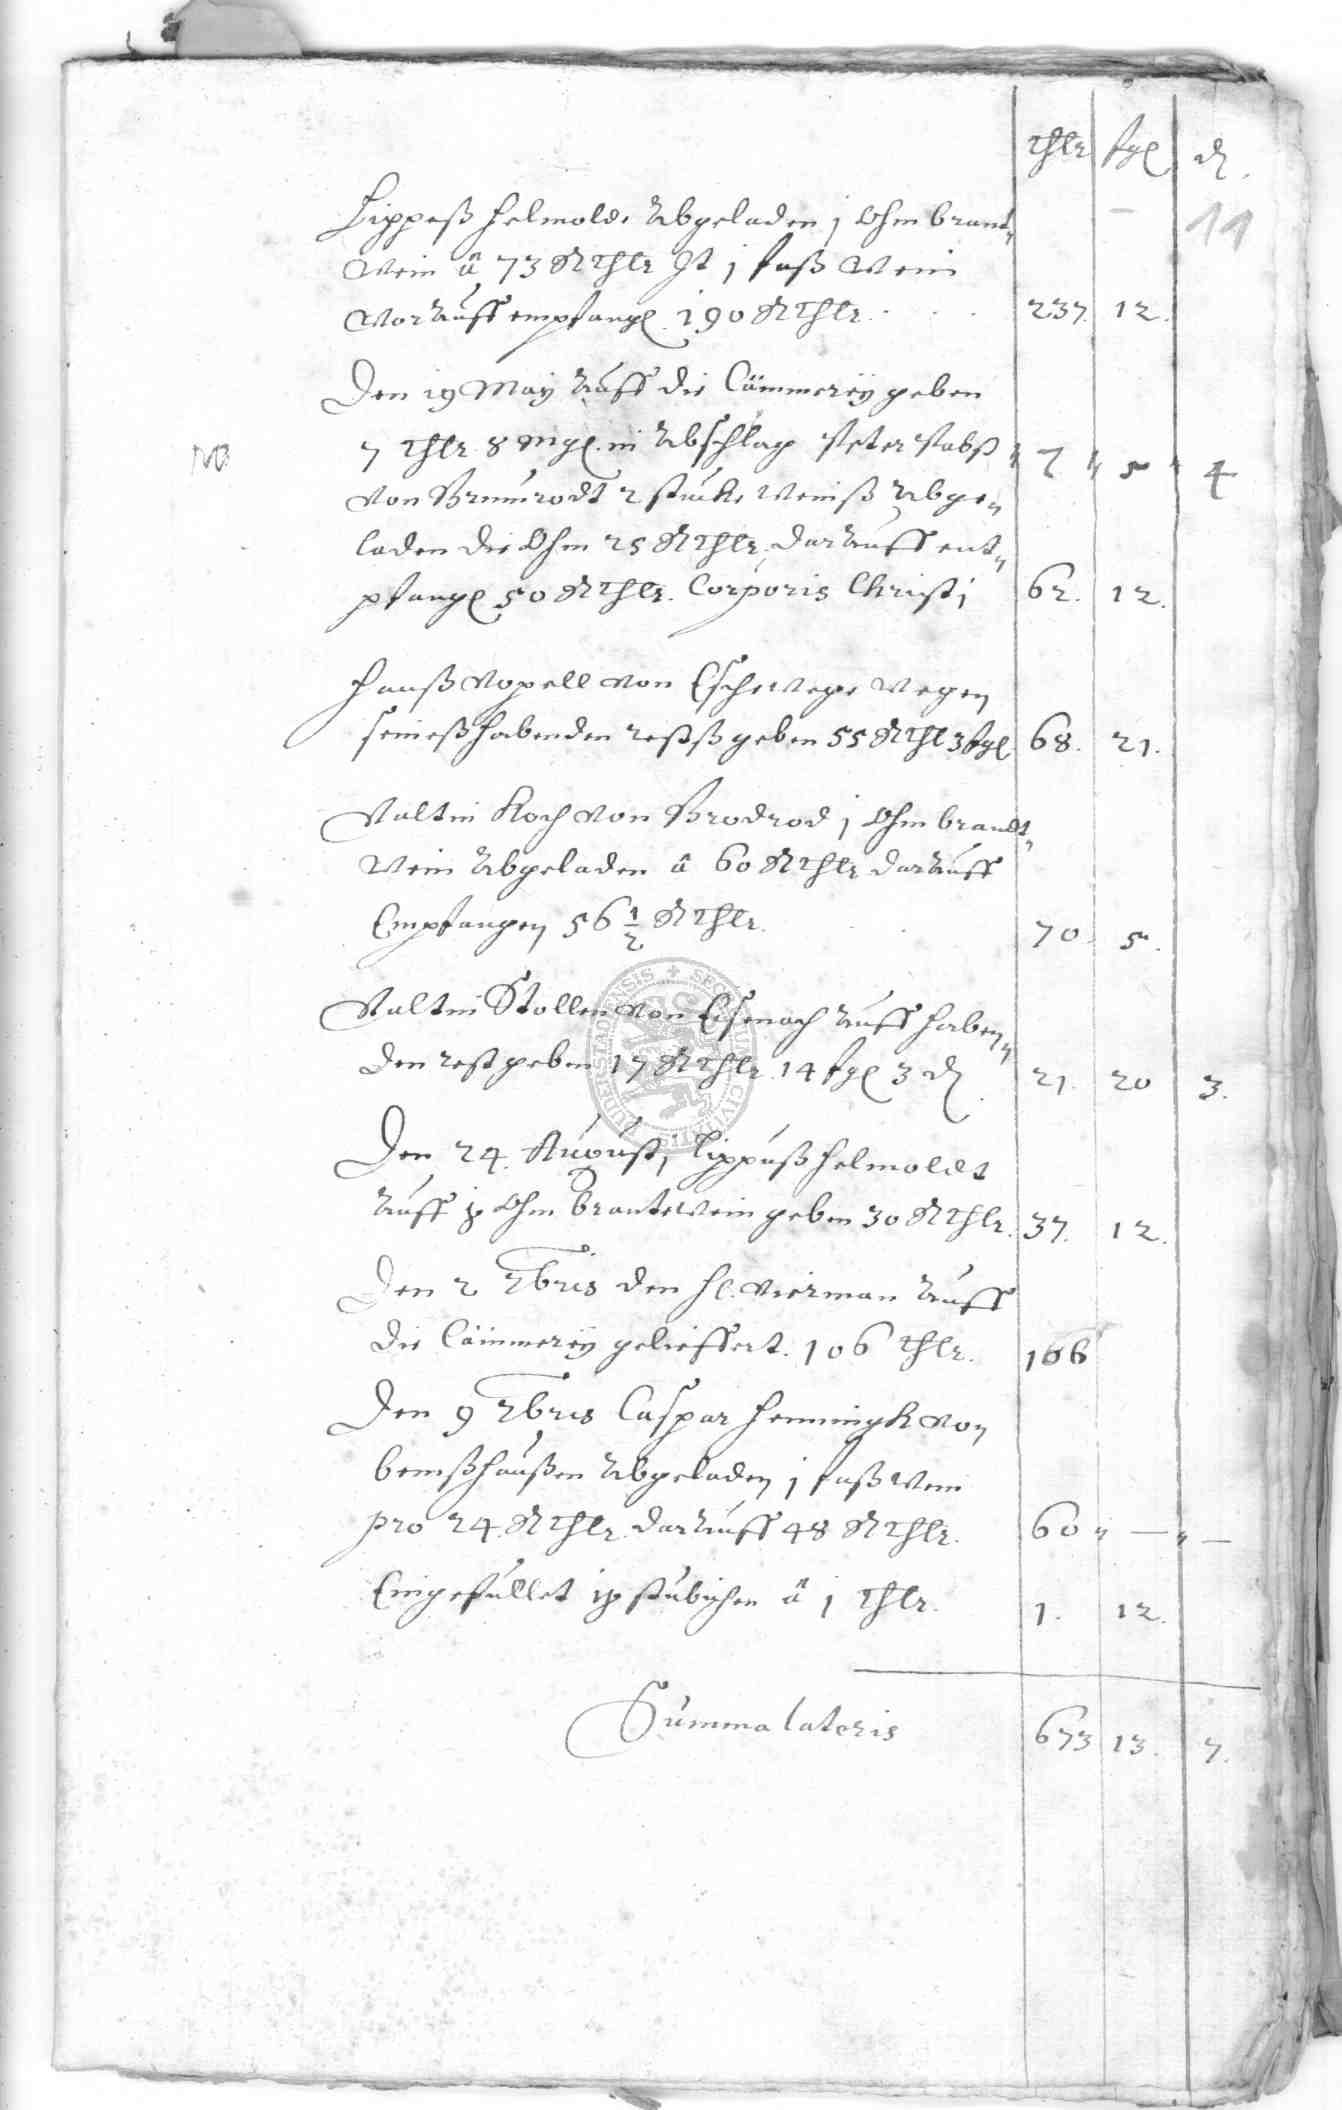 Thlr sgl d.
11
Lippuß Helmolde Abgeladen j Ohm brandt„
Wein â 73 RThlr It j faß Wein
Worauff empfangl 190 RThlr. 237. 12.
Den 19 Maÿ Auff die Cämmereÿ geben
NB 7 Thlr. 8 mgl. in Abschlag Peter Pabst 7 „ 5 „ 4
von Brunrodt 2 stücke Weinß Abge„
laden die Ohm 25 RThlr, darauff ent„
pfangl 50 RThlr. Corporis Christj 62. 12.
Hanß Vopell von Eschewege wegen
seineß habenden restß geben 55 RThl 3 sgl 68. 21.
Valtin Koch von Brodrod j Ohm brandt„
Wein Abgeladen â 60 RThlr darauff
Empfangen 56 1/2 RThlr. 70. 5.
Valtin Stollen von Eisenach Auff haben„
den rest geben 17 RThlr. 14 sgl 3 d 21. 20 3.
Den 24. Augustj Lippuß Helmoldt
Auff Ohm brantewein geben 30 RThlr. 37. 12.
Den 2 7bris den H. Vierman Auff
die Cämmereÿ gelieffert. 106 Thlr. 106
Den 9 7bris Caspar Henningk von
bernßhaußen Abgeladen j faß Wein
pro 24. RThlr darauff 48 RThlr. 60 „ — „ —
Eingefüllet stübichen â j Thlr. 1. 12.
Summa lateris 673 13. 7.